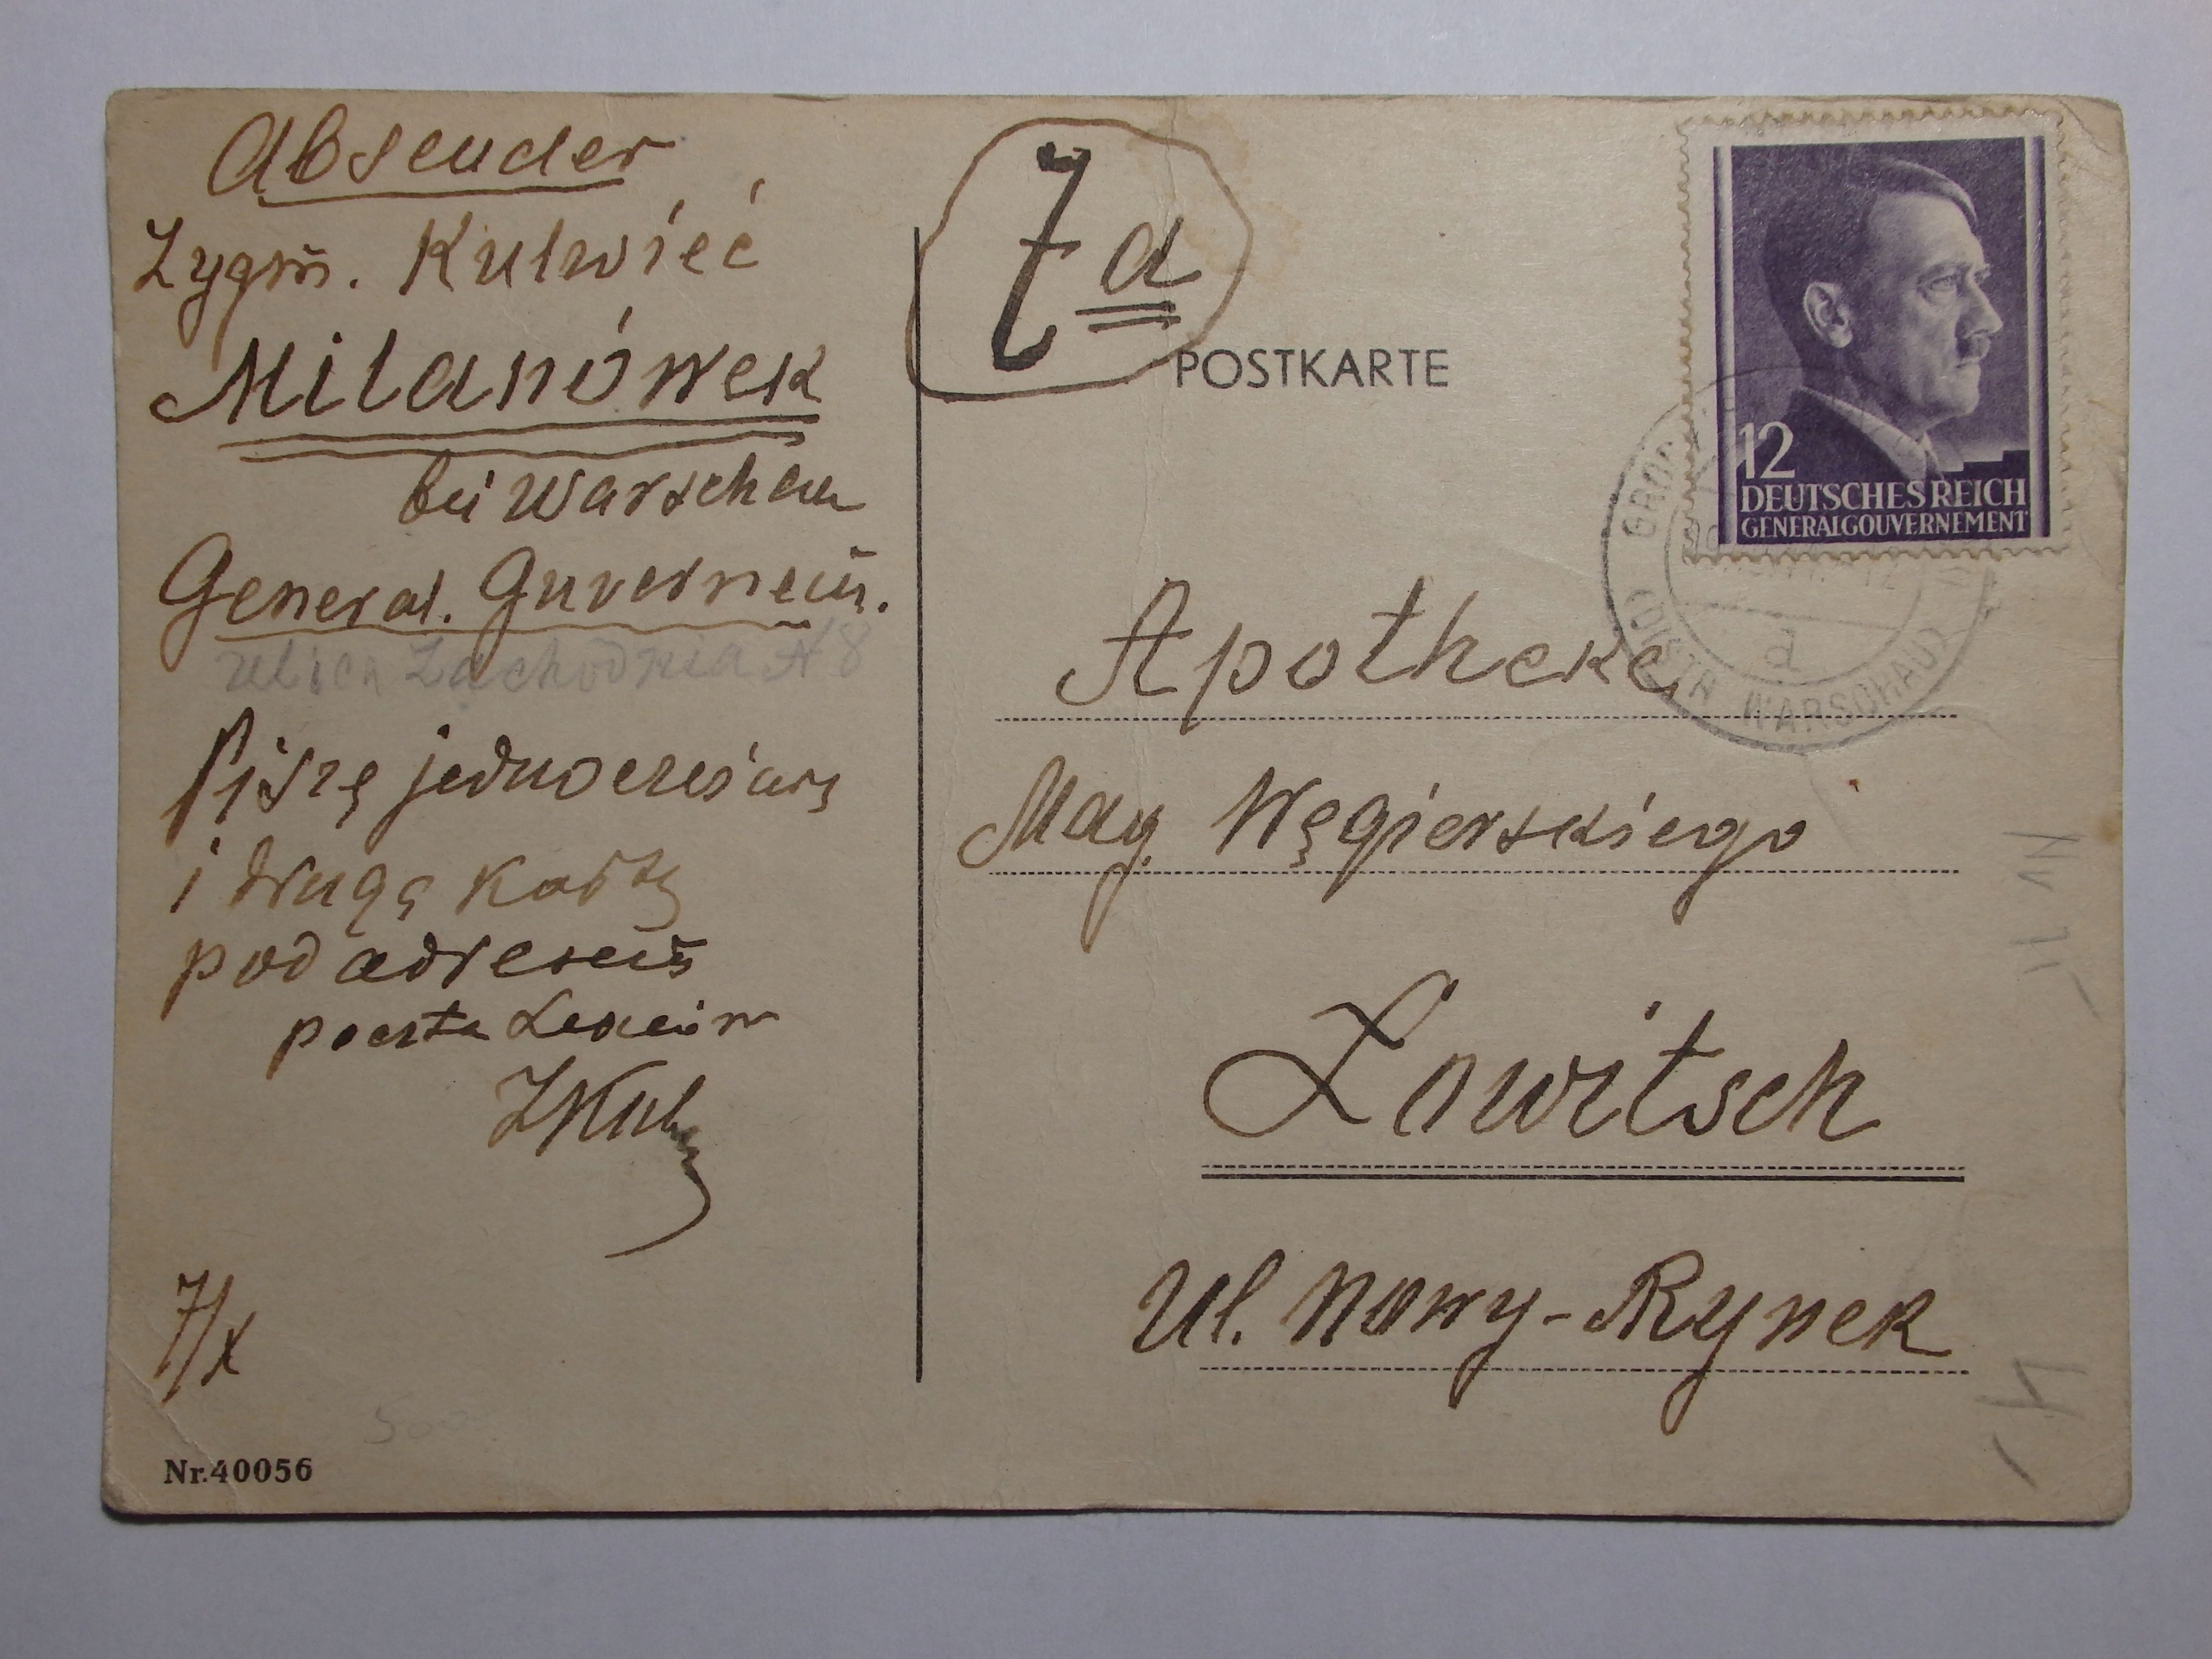 Absender
Zygm̄. Kulwieć
Milanówek
bei Warschau
General. Guvernem̄.
ulica Zachodnia № 8
Piszę jednocześnie
i drugą kartę
pod adresem̄
poczta
ZKul
7/X
Nr.40056
7a
POSTKARTE
12
DEUTSCHES REICH
GENERALGOUVERNEMENT
(DISTR WARSCHAU)
a
Apotheke
Mag. Węgierskiego
Lowitsch
Ul. Nowy-Rynek